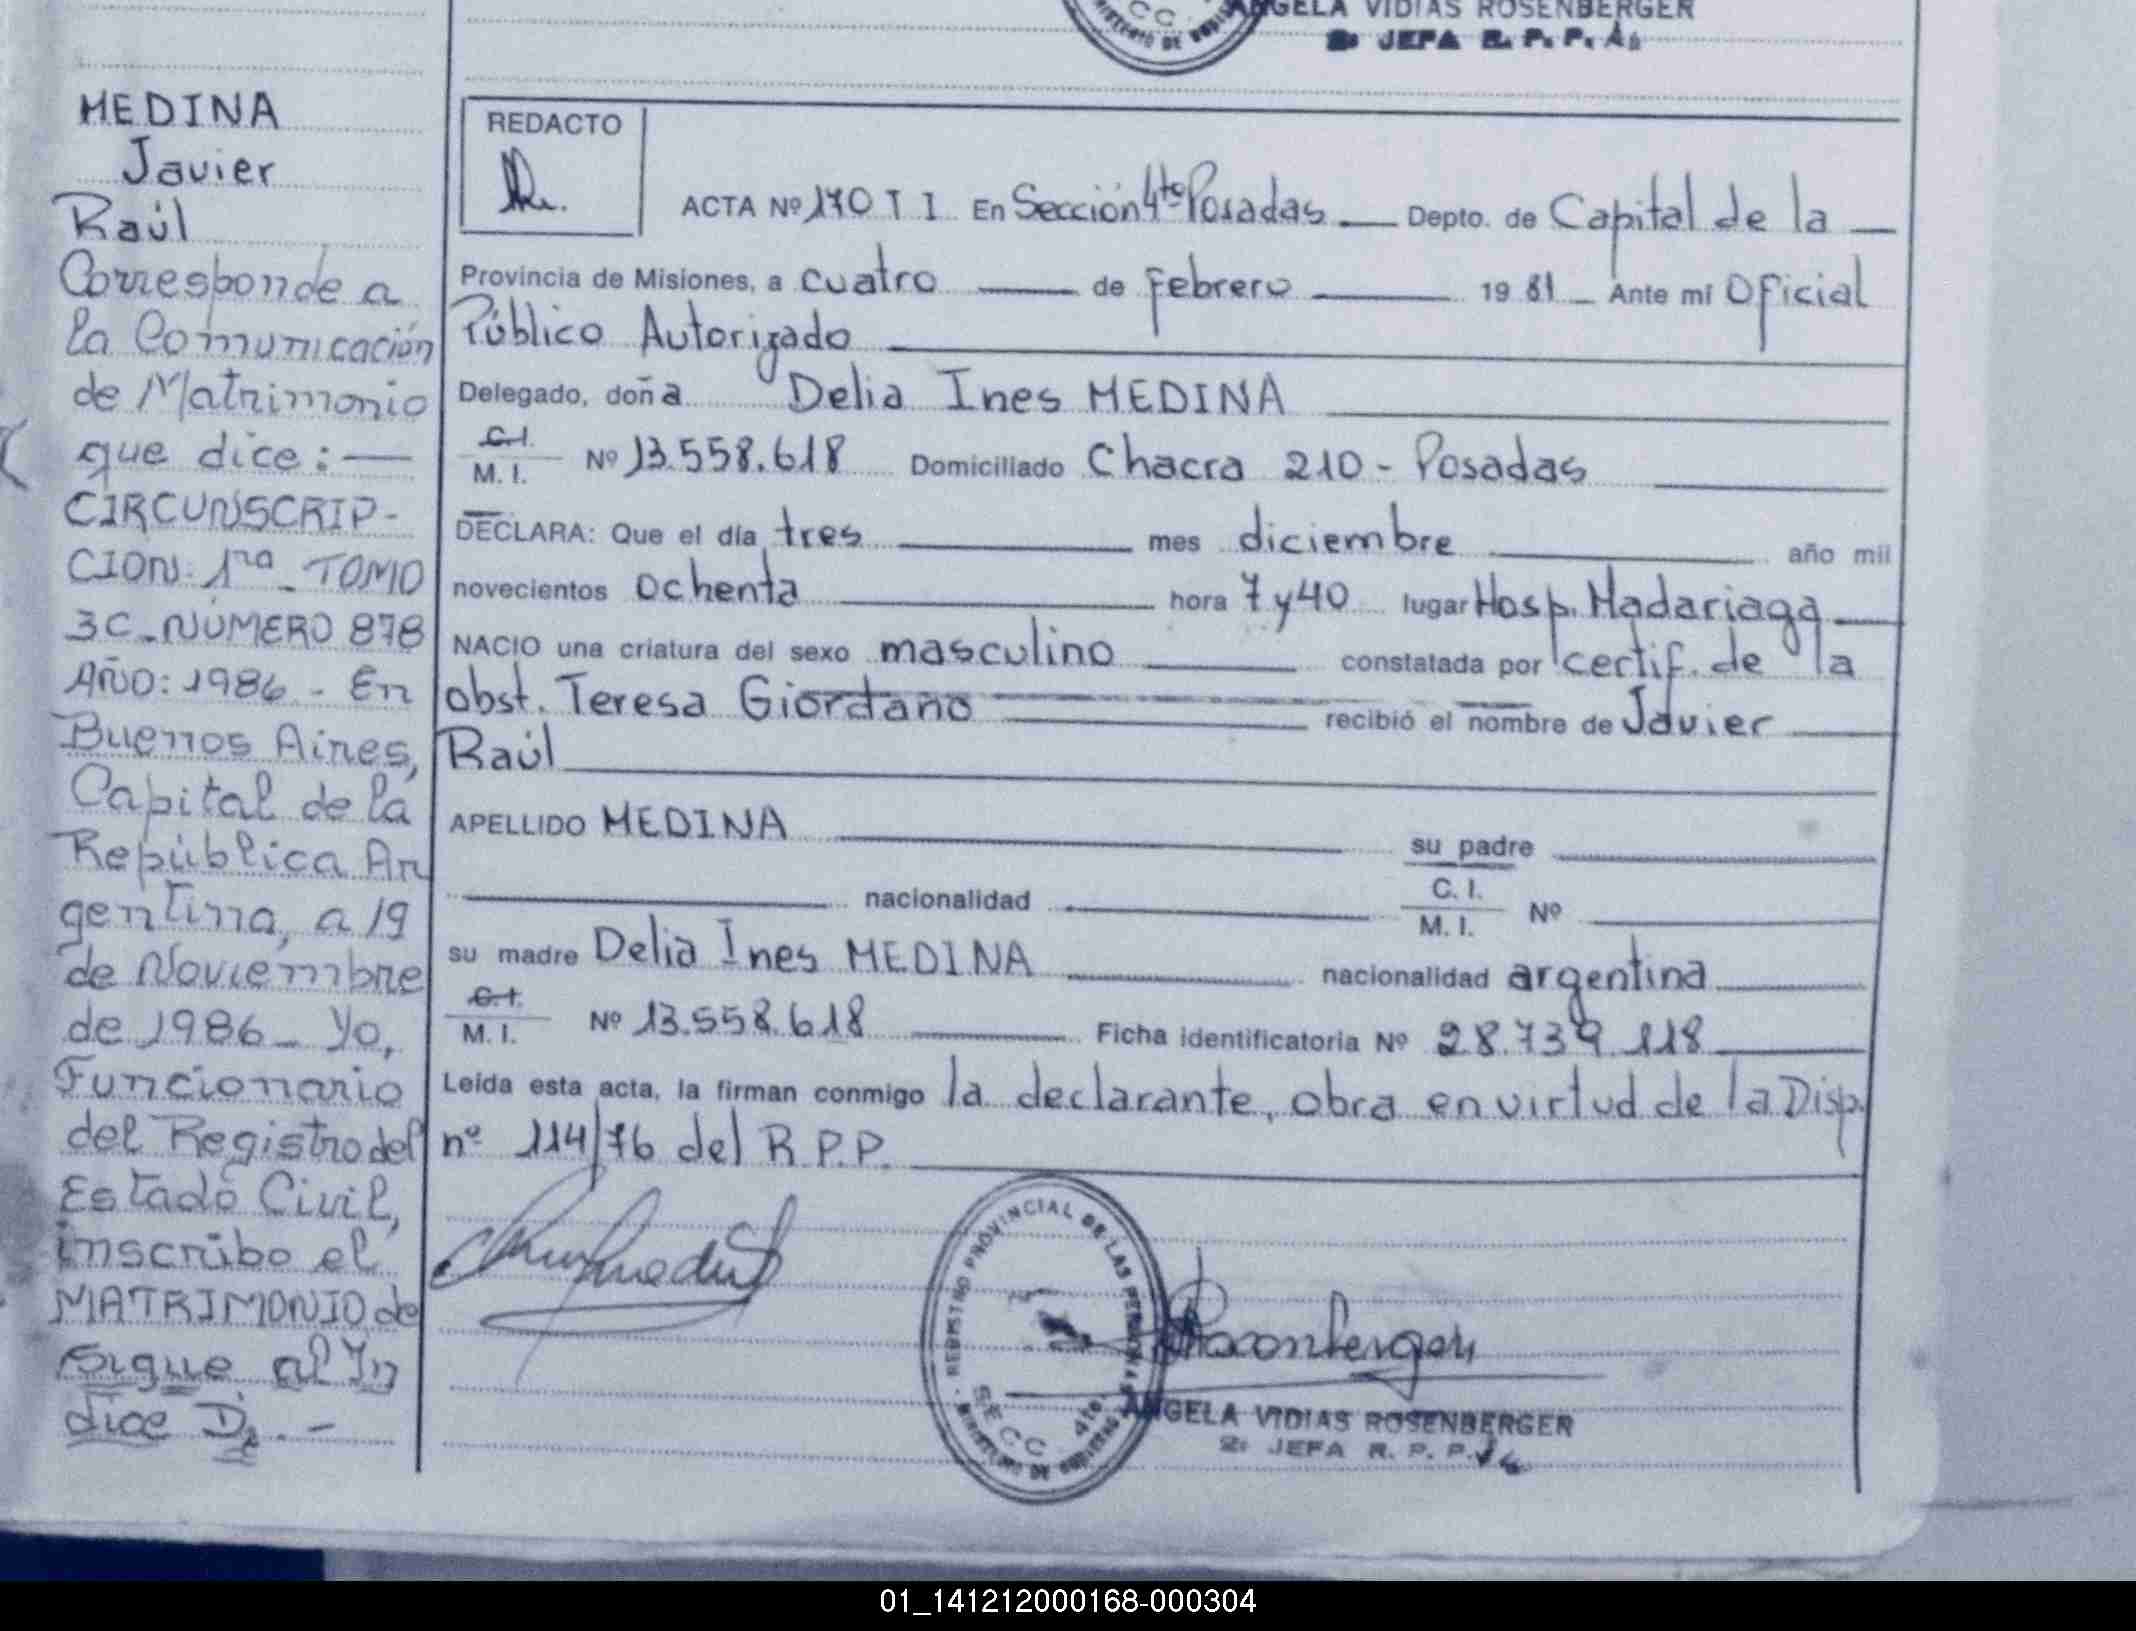 ANGELA VIDIAS ROSENBERGER
2: JEFA R. P. P. A.
MEDINA
Javier
Raúl
Corresponde a
la Comunicación
de Matrimonio
que dice: —
CIRCUNSCRIP-
CION: 1ra - TOMO
3C - NÚMERO 878
AÑO: 1986 - En
Buenos Aires,
Capital de la
República Ar
gentina, a 19
de Noviembre
de 1986 - Yo,
Funcionario
del Registro del
Estado Civil,
inscribo el
MATRIMONIO de
Sigue al In
dice D
REDACTO
ACTA Nº 170 T I En Sección 4ta Posadas — Depto. de Capital de la —
Provincia de Misiones, a cuatro — de febrero — 19 81 — Ante mí Oficial
Público Autorizado
Delegado, doña Delia Ines MEDINA
C.I.
M. I. Nº 13.558.618 Domiciliado Chacra 210 - Posadas
DECLARA: Que el día tres — mes diciembre — año mil
novecientos ochenta — hora 7 y 40 lugar Hosp. Madariaga —
NACIO una criatura del sexo masculino — constatada por certif. de la
obst. Teresa Giordano — recibió el nombre de Javier
Raúl
APELLIDO MEDINA — su padre —
— nacionalidad — C. I.
M. I. Nº
su madre Delia Ines MEDINA — nacionalidad argentina
C.I.
M. I. Nº 13.558.618 — Ficha identificatoria Nº 28.739.118
Leída esta acta, la firman conmigo la declarante, obra en virtud de la Disp.
nº 114/76 del R.P.P.
REGISTRO PROVINCIAL DE LAS PERSONAS
SECC 4to.
MINISTERIO DE GOBIERNO
ANGELA VIDIAS ROSENBERGER
2: JEFA R. P. P.
01_141212000168-000304